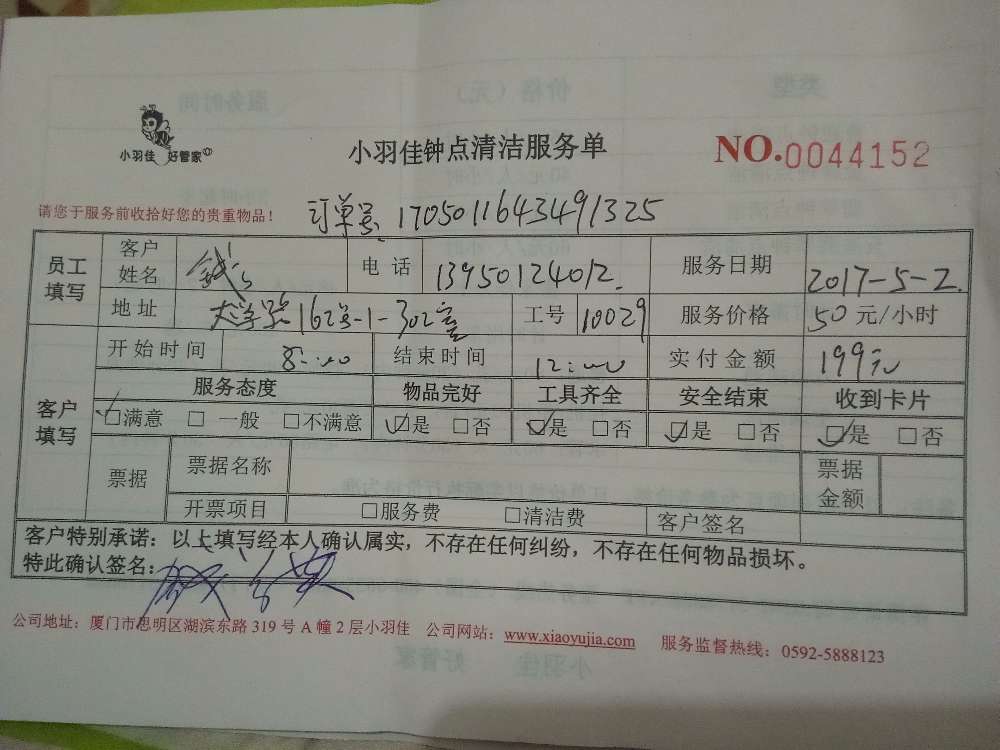 小羽佳 好管家
小羽佳钟点清洁服务单
NO.0044152
请您于服务前收拾好您的贵重物品！
订单号 1705011643491325
员工填写 客户姓名 钱 电话 13950124012 服务日期 2017-5-2
地址 大学路162号-1-302室 工号 10029 服务价格 50 元/小时
客户填写 开始时间 8:00 结束时间 12:00 实付金额 199元
服务态度 物品完好 工具齐全 安全结束 收到卡片
☑满意 □ 一般 □不满意 ☑是 □否 ☑是 □否 ☑是 □否 ☑是 □否
票据 票据名称 票据金额
开票项目 □服务费 □清洁费 客户签名
客户特别承诺：以上填写经本人确认属实，不存在任何纠纷，不存在任何物品损坏。
特此确认签名：
公司地址：厦门市思明区湖滨东路 319 号 A 幢 2 层小羽佳 公司网站：www.xiaoyujia.com 服务监督热线：0592-5888123